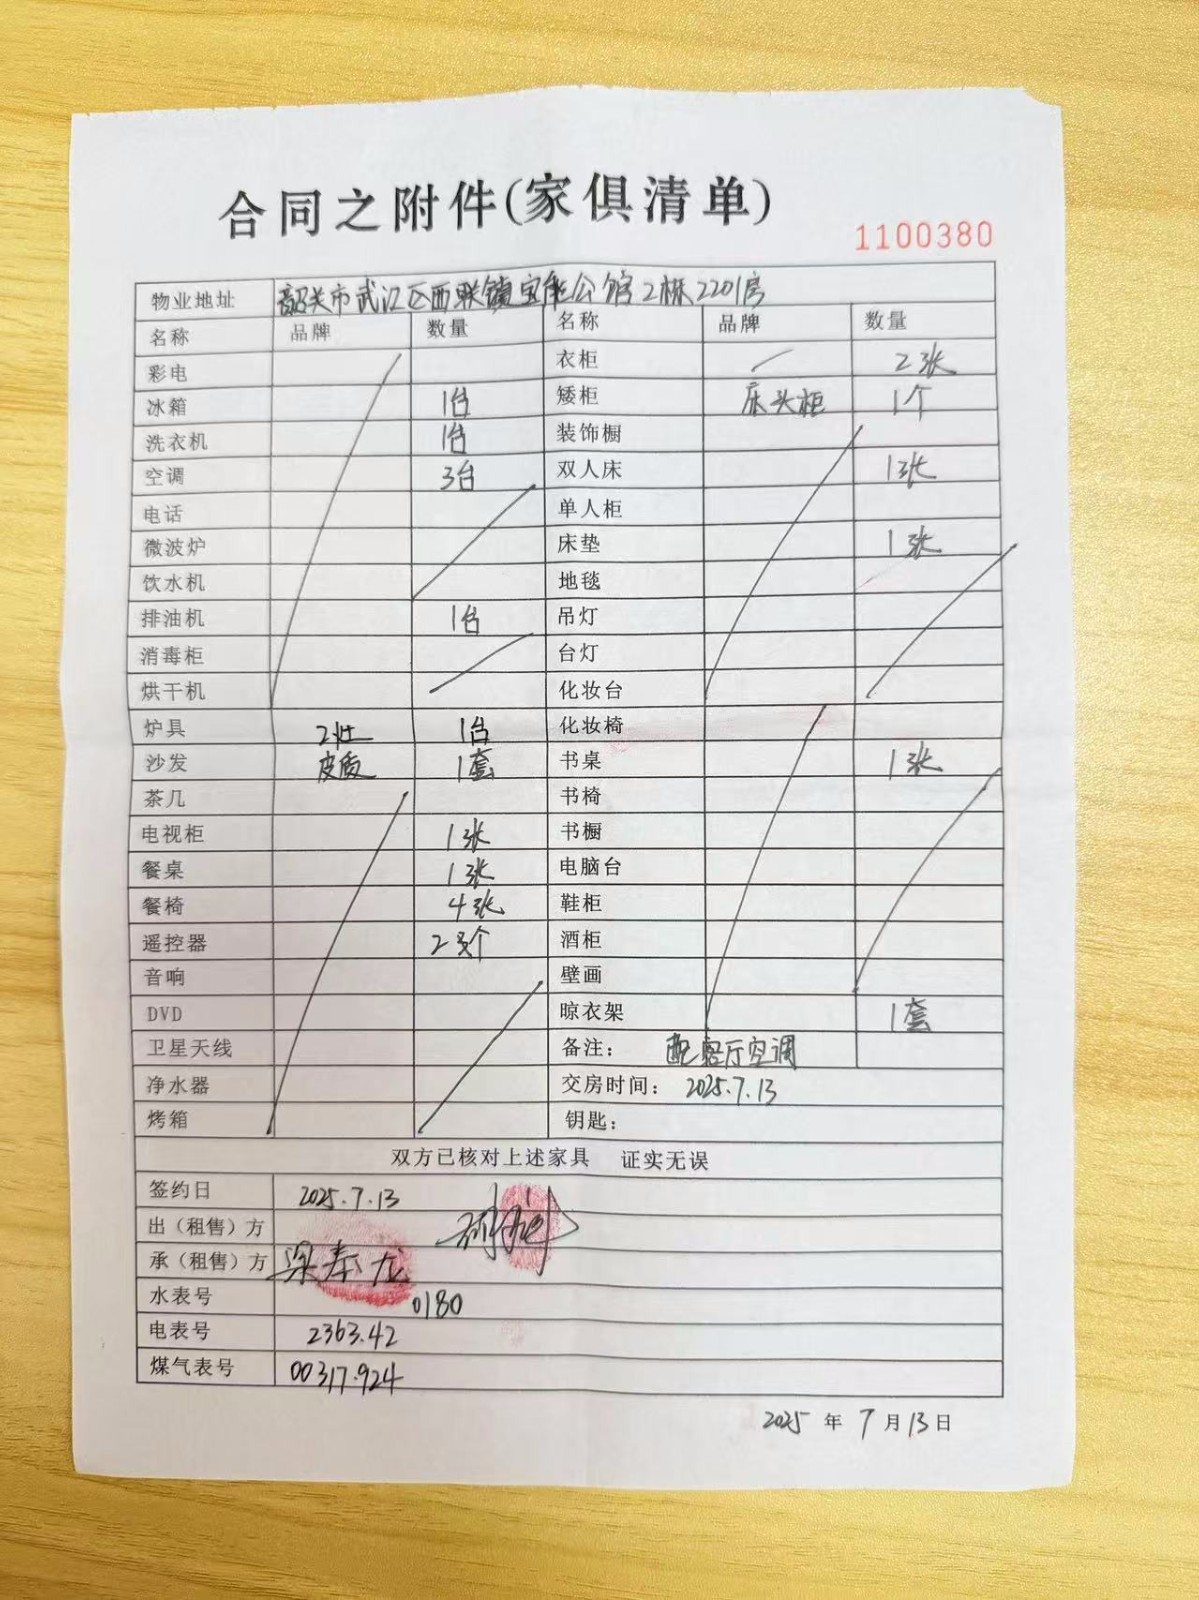 合同之附件(家俱清单)
1100380
物业地址 韶关市武江区西联镇宝能公馆2栋2201房
名称 品牌 数量 名称 品牌 数量
彩电 衣柜 2张
冰箱 1台 矮柜 床头柜 1个
洗衣机 1台 装饰橱
空调 3台 双人床 1张
电话 单人柜
微波炉 床垫 1张
饮水机 地毯
排油机 1台 吊灯
消毒柜 台灯
烘干机 化妆台
炉具 2灶 1台 化妆椅
沙发 皮质 1套 书桌 1张
茶几 书椅
电视柜 1张 书橱
餐桌 1张 电脑台
餐椅 4张 鞋柜
遥控器 2个 酒柜
音响 壁画
DVD 晾衣架 1套
卫星天线 备注： 配客厅空调
净水器 交房时间： 2025.7.13
烤箱 钥匙：
双方已核对上述家具 证实无误
签约日 2025.7.13
出（租售）方
承（租售）方 梁奉龙
水表号 0180
电表号 2363.42
煤气表号 00317.924
2025 年 7 月 13 日